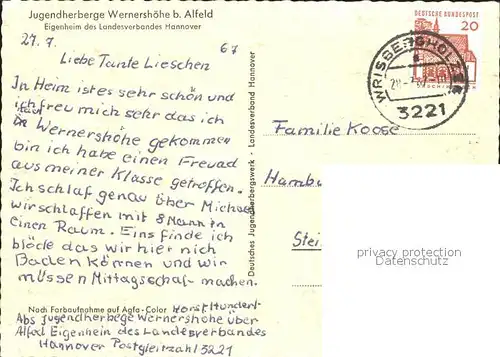 Jugendherberge Wernershöhe b. Alfeld
Eigenheim des Landesverbandes Hannover
27.7. 67
Liebe Tante Lieschen
In Heim ist es sehr schön und
ich freu mich sehr das ich
in Wernershöhe gekommen
bin ich habe einen Freund
aus meiner Klasse getroffen.
Ich schlaf genau über Michael
wir schlaffen mit 8 Mann in
einen Raum. Eins finde ich
blöde das wir hier nich
Baden können und wir
müssen Mittagsschaf machen.
Nach Farbaufnahme auf Agfa-Color Horst Hundert
Abs Jugendherbege Wernershöhe über
Alfed Eigenheim des Landesverbandes
Hannover Postgleitzahl 3221
Deutsches Jugendherbergswerk - Landesverband Hannover
DEUTSCHE BUNDESPOST
20
WRISBERGHOLZEN
3221
Familie Koose
Hambu
Stei
privacy protection
delcampe.net